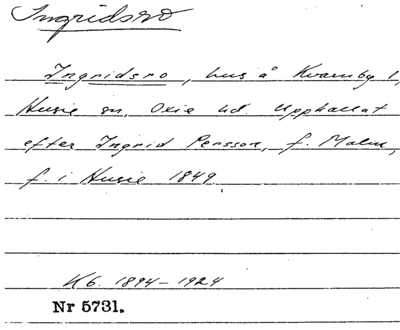 Ingridsro
Ingridsro, hus å Kvarnby 1,
Husie sn, Oxie hd. Uppkallat
efter Ingrid Persson, f. Malm,
f. i Husie 1849
Kb. 1894-1924
Nr 5731.